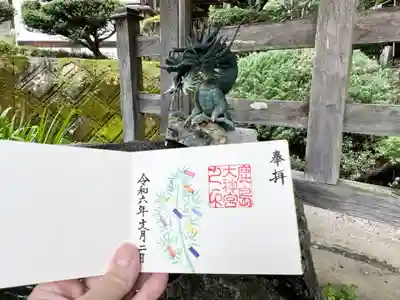 奉拝
鹿島
大神宮
令和六年文月二日